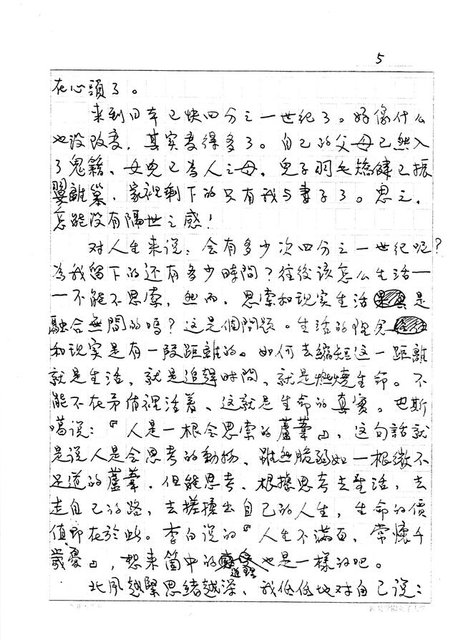 5
在心頭了。
来到日本已快四分之一世紀了。好像什么
也没改变，其实变得多了。自己的父母已然入
了鬼籍，女兒已为人之母，兒子羽毛矯健已振
翼離巢，家裡剩下的只有我与妻子了。思之，
怎能没有隔世之感！
对人生来说，会有多少次四分之一世紀呢？
為我留下的还有多少時間？往後该怎么生活一
一不能不思索，然而，思索和现实生活是
融会無間的嗎？这是個問題。生活的理念
和现实是有一段距離的。如何去縮短这一距離
就是生活，就是追趕时間，就是燃燒生命。不
能不在矛盾裡活着，这就是生命的真實。巴斯
噶说：『人是一根会思索的蘆葦』，这句話就
是说人是会思考的動物，雖然脆弱如一根微不
足道的蘆葦，但能思考，根據思考去生活，去
走自己的路，去搓揉出自己的人生，生命的價
值即在於此。李白说的『人生不满百，常懷千
歲憂』，想来箇中的道理也是一樣的吧。
北风越緊思緒越深，我低低地对自己说：